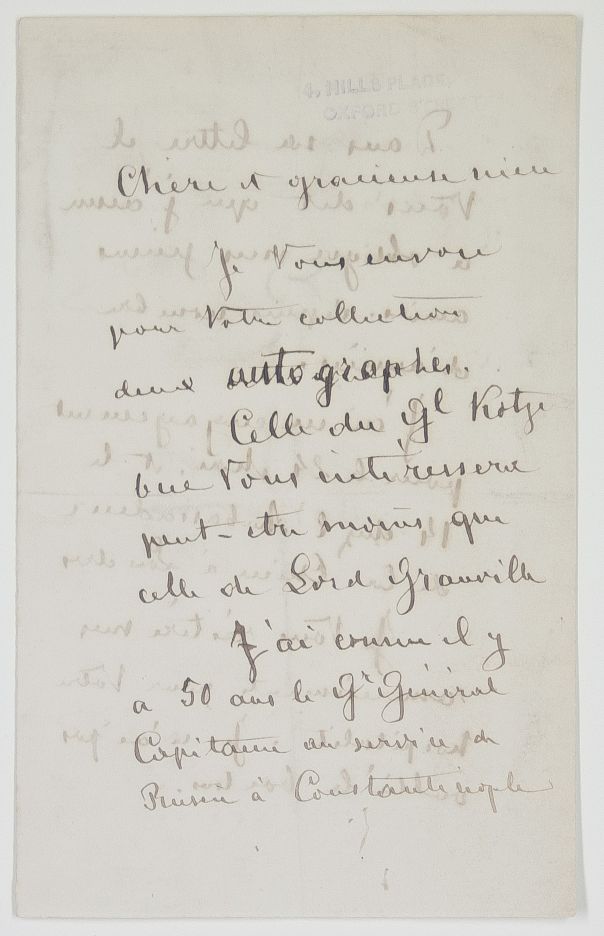 4, HILLS PLACE,
OXFORD STREET
Chère et gracieuse nièce
Je Vous envoie
pour Votre collection
deux autographes.
Celle du Gl Kotze
bue Vous intéressera
peut-etre moins que
celle de Lord Granville
J'ai connu il y
a 50 ans le Gl Général
Capitaine au service de
Prusse à Constantinople